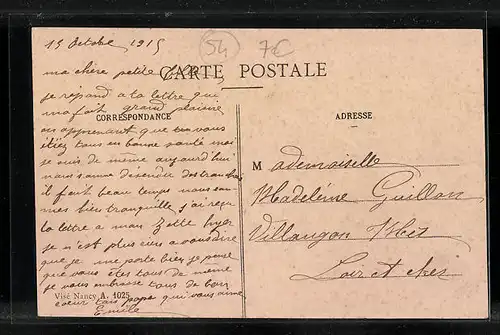 15 Octobre 1915
54
7€
ma chère petite
CARTE POSTALE
je repond a ta lettre qui
ma fait grand plaisire
CORRESPONDANCE
ADRESSE
en apprenant que vous
étiez tous en bonne santé moi
je suis de meme aujourd'hui
nous avons desendu des tranchés
il fait beau temps nous som
mes bien tranquille j'ai reçu
la lettre a man
je n'est plus rien a vous dire
que je me porte bien je pense
que vous êtes tous de meme
je vous embrasse tous de bon
coeur ton papa qui vous aime
Emile
Visé Nancy A. 1025
Mademoiselle
Madeleine Guillon
Villaugon
Loir et cher